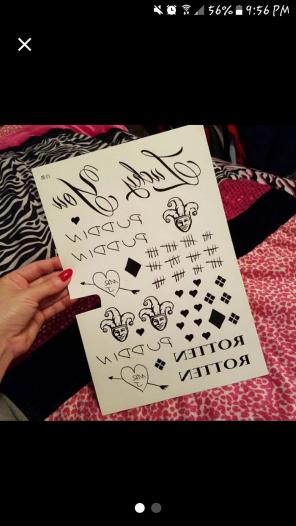 56% 9:56 PM
Lucky You
PUDDIN
PUDDIN
PUDDIN
ROTTEN
ROTTEN